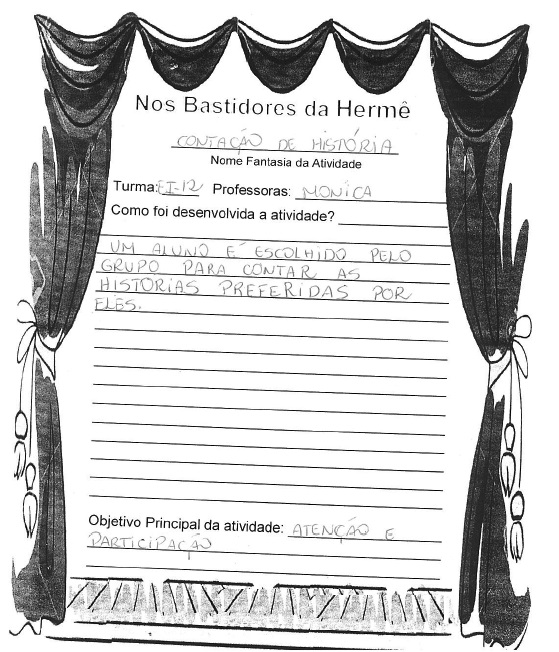 Nos Bastidores da Hermê
CONTAÇÃO DE HISTÓRIA
Nome Fantasia da Atividade
Turma: EI-12 Professoras: MONICA
Como foi desenvolvida a atividade?
UM ALUNO É ESCOLHIDO PELO
GRUPO PARA CONTAR AS
HISTÓRIAS PREFERIDAS POR
ELES.
Objetivo Principal da atividade: ATENÇÃO E
PARTICIPAÇÃO